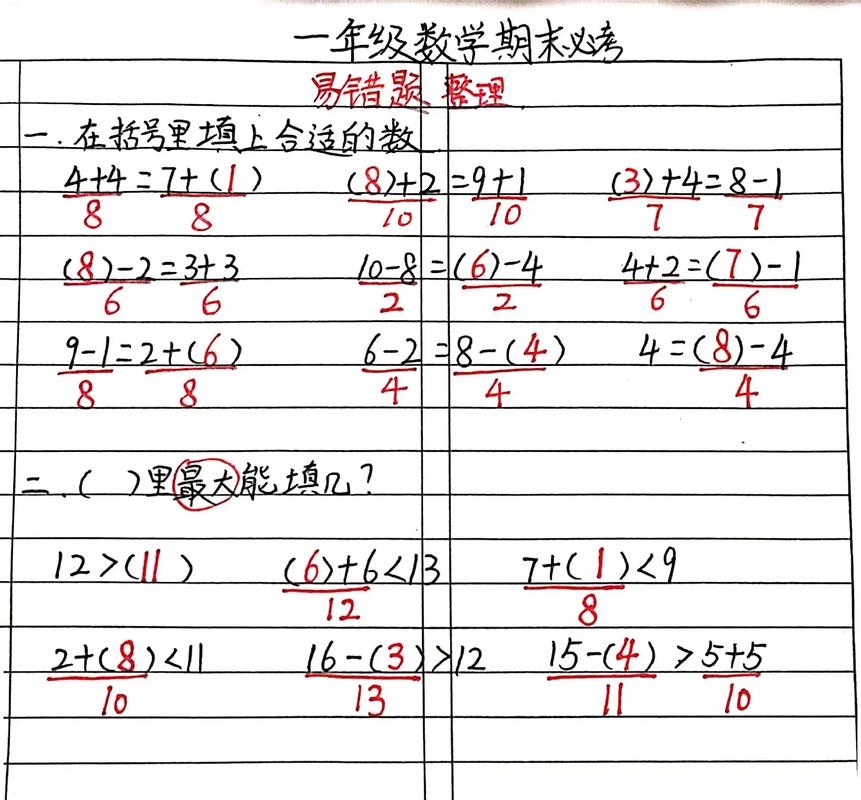 一年级数学期末必考
易错题 整理
一.在括号里填上合适的数
4+4=7+(1) (8)+2=9+1 (3)+4=8-1
8 8 10 10 7 7
(8)-2=3+3 10-8=(6)-4 4+2=(7)-1
6 6 2 2 6 6
9-1=2+(6) 6-2=8-(4) 4=(8)-4
8 8 4 4 4
二.( )里最大能填几?
12>(11) (6)+6<13 7+(1)<9
12 8
2+(8)<11 16-(3)>12 15-(4)>5+5
10 13 11 10